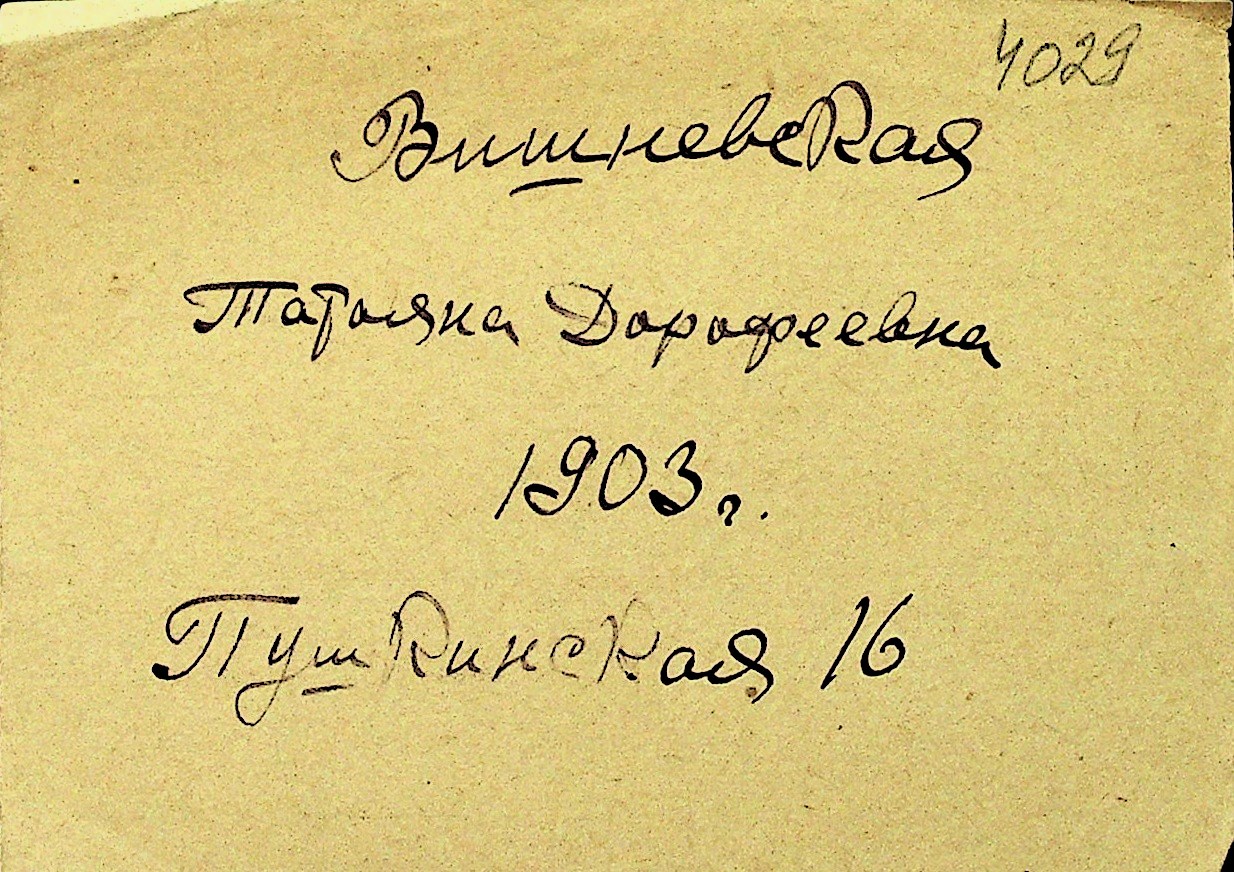 4029
Вишневская
Татьяна Дорофеевна
1903 г.
Пушкинская 16